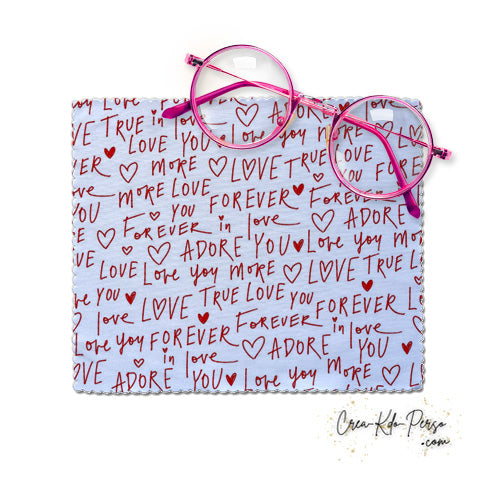 you Love FOREVER in love
LOVE TRUE in love LOVE
FOREVER LOVE Love you MORE LOVE
love MORE LOVE MORE LOVE TRUE LOVE
YOU YOU FOREVER FOREVER
FOREVER in love ADORE
LOVE ADORE YOU in love
LOVE Love you MORE TRUE L
you LOVE TRUE LOVE YOU FOREVER
love FOREVER FOREVER in love
Love you FOREVER in love ADORE YOU
OVE ADORE YOU Love you MORE LO
Crea-Kdo-Perso
.com